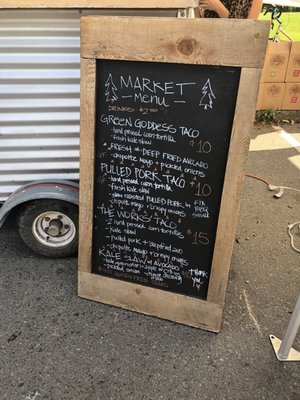 MARKET
Menu
DRINKS $2.00
GREEN GODDESS TACO
- hand pressed corn tortilla
- fresh kale slaw
$10
* FRESH or DEEP FRIED AVOCADO
- chipotle mayo + pickled onions
PULLED PORK TACO
- hand pressed corn tortilla
- fresh kale slaw
$10
- slow roasted PULLED PORK in
- chipotle mayo + crispy onions
THE WORKS TACO
- 2 hand pressed corn tortillas
- kale slaw
- pulled pork + deep fried avo
$15
- chipotle mayo + crispy onions
KALE SLAW w/ AVOCADO
- pickled onion - chipotle dressing
thank
you